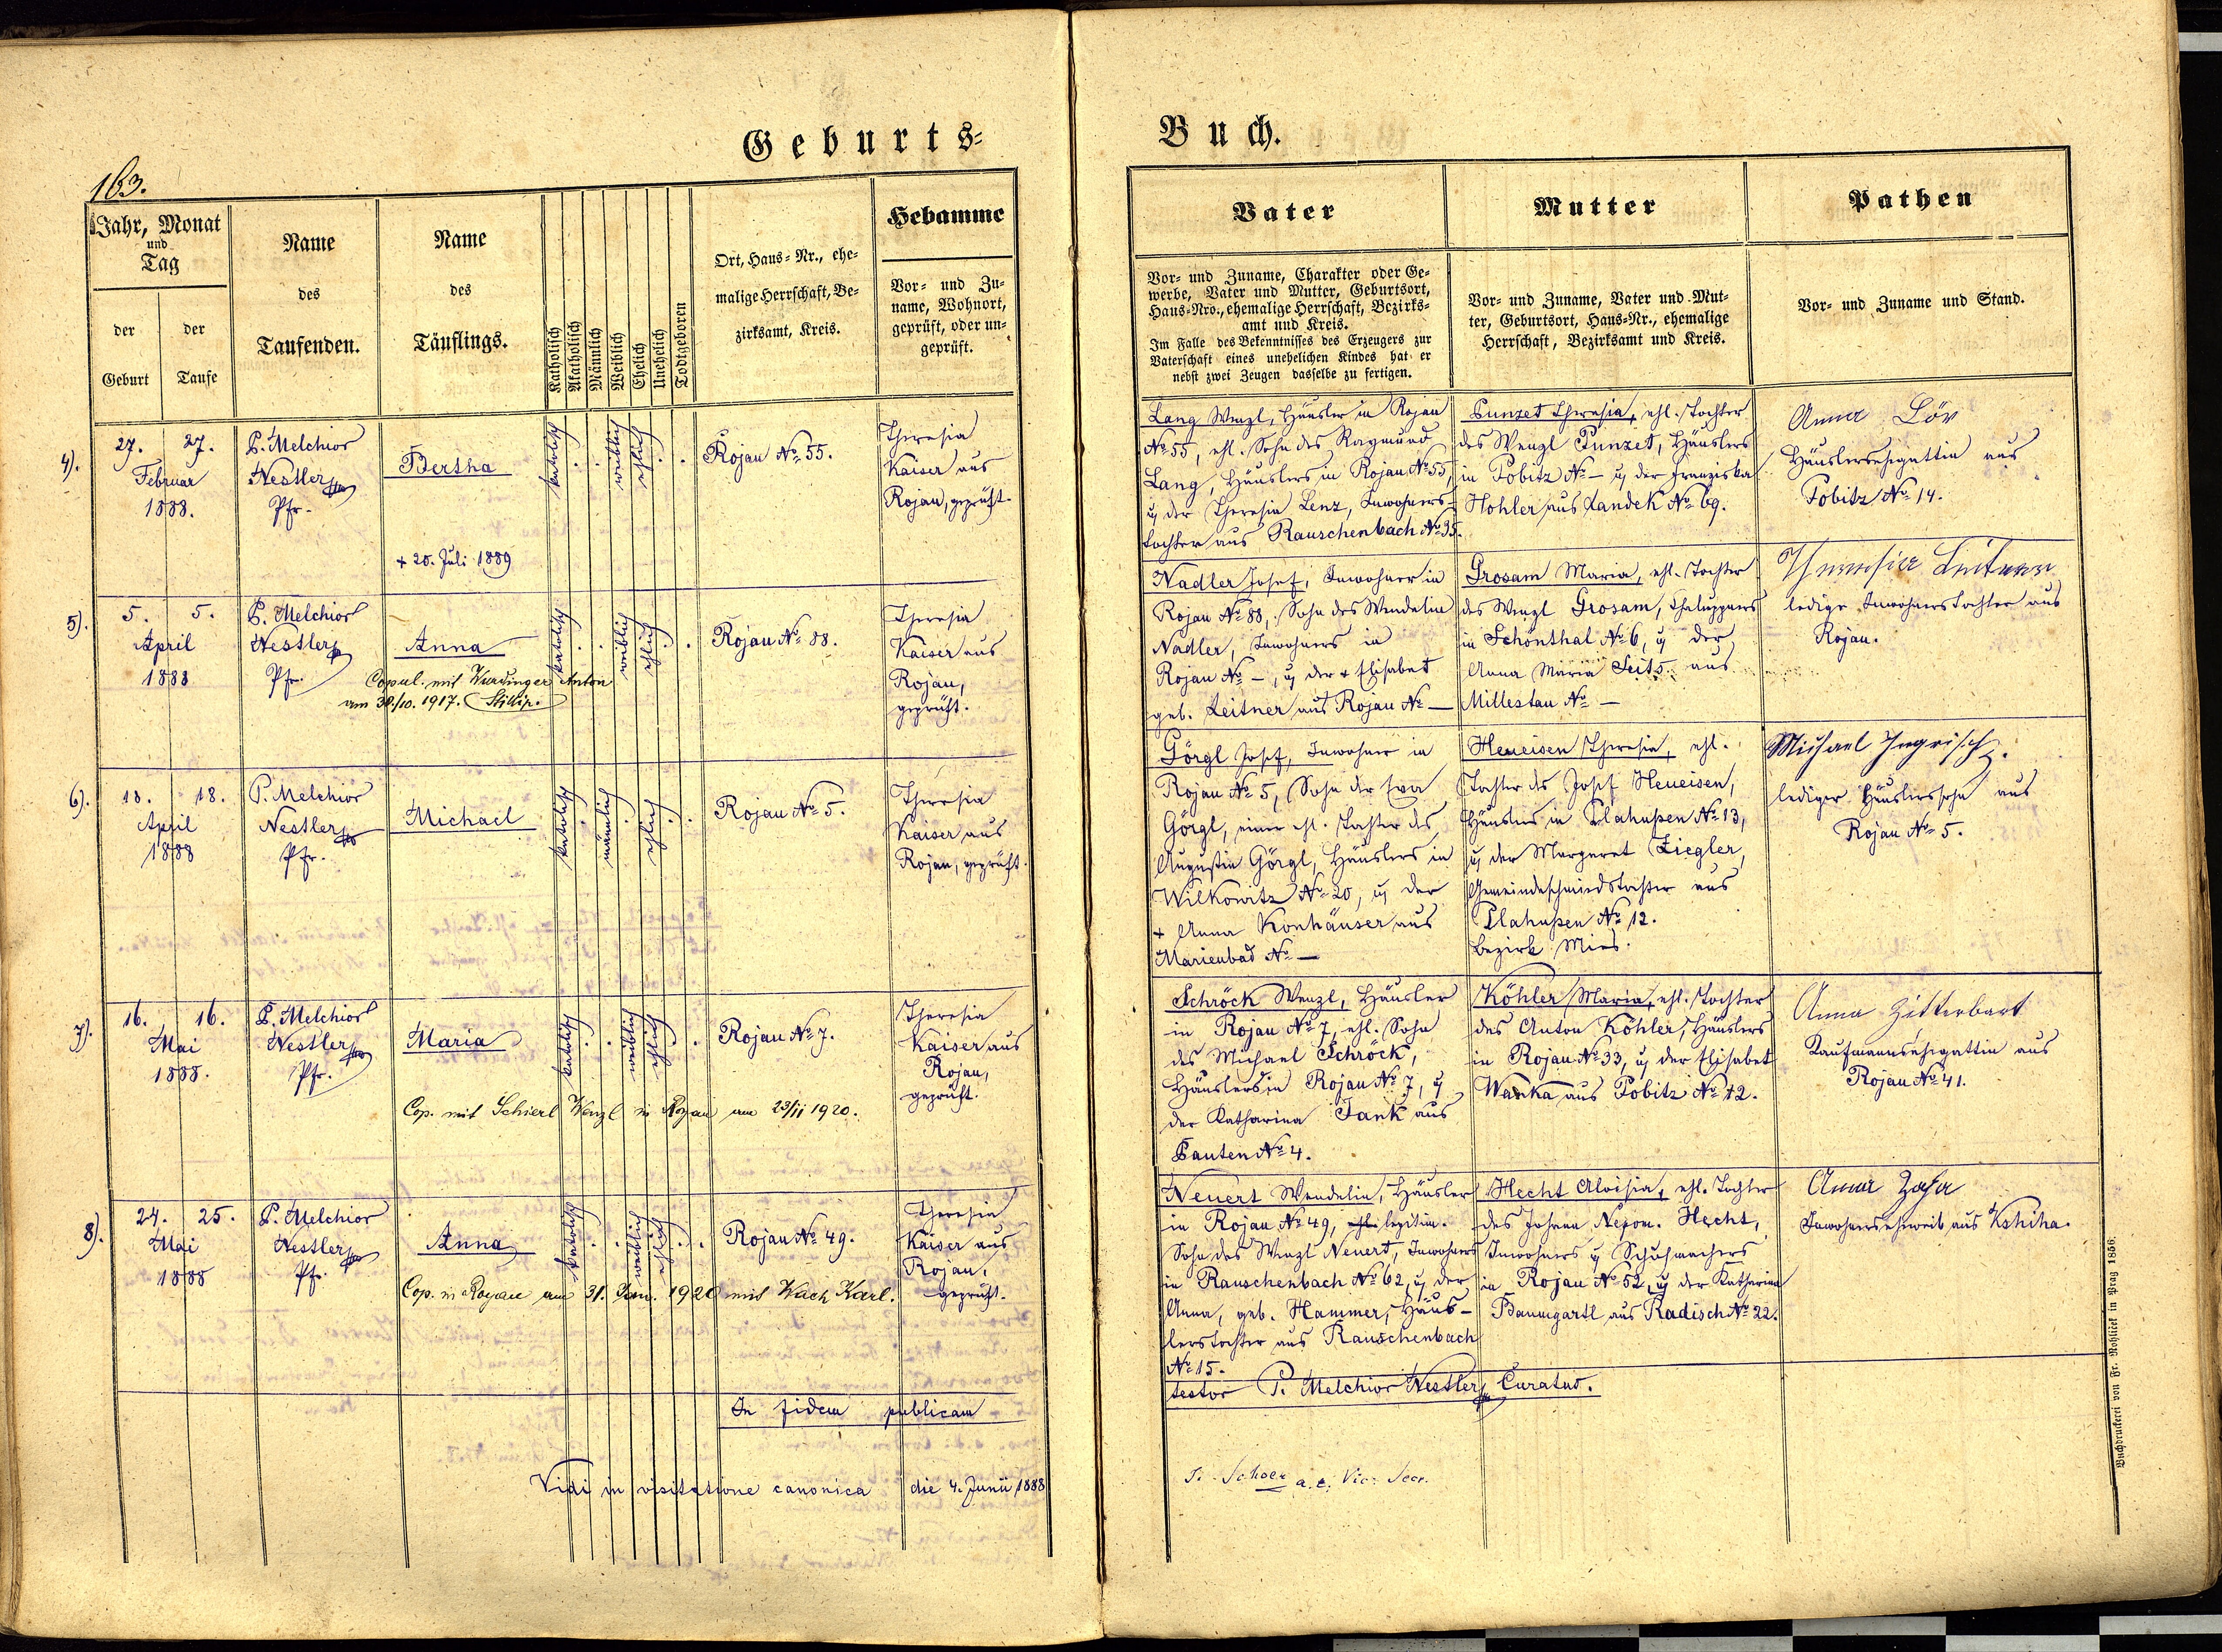 Geburts=
Buch.
163.
Jahr, Monat
und
Tag
der
Geburt
der
Taufe
Name
des
Taufenden.
Name
des
Täuflings.
Katholisch
Akatholisch
Männlich
Weiblich
Ehelich
Unehelich
Todtgeboren
Ort, Haus=Nr., ehe=
malige Herrschaft, Be=
zirksamt, Kreis.
Hebamme
Vor= und Zu=
name, Wohnort,
geprüft, oder un=
geprüft.
Vater
Vor= und Zuname, Charakter oder Ge=
werbe, Vater und Mutter, Geburtsort,
Haus=Nro., ehemalige Herrschaft, Bezirks=
amt und Kreis.
Im Falle des Bekenntnisses des Erzeugers zur
Vaterschaft eines unehelichen Kindes hat er
nebst zwei Zeugen dasselbe zu fertigen.
Mutter
Vor= und Zuname, Vater und Mut=
ter, Geburtsort, Haus=Nr., ehemalige
Herrschaft, Bezirksamt und Kreis.
Pathen
Vor= und Zuname und Stand.
4).
27. 27.
Februar
1888.
P. Melchior
Nestler
Pfr.
Bertha
+ 20. Juli 1889
katholisch
weiblich
ehlich
Rojau No 55.
Theresia
Kaiser aus
Rojau, geprüft.
Lang Wenzl, Häusler in Rojau
No 55, ehl. Sohn des Raymund
Lang, Häuslers in Rojau No 55,
u der Theresia Lenz, Inwohners-
tochter aus Rauschenbach No 35.
Punzet Theresia, ehl. Tochter
des Wenzl Punzet, Häuslers
in Pobitz No – u der Franziska
Hohler aus Landek No 69.
Anna Löv
Häuslersehegattin aus
Pobitz No 14.
5).
5. 5.
April
1888
P. Melchior
Nestler
Pfr.
Anna
Copul. mit Wurdinger Anton
am 30./10. 1917.
katholisch
weiblich
ehlich
Rojau No 88.
Theresia
Kaiser aus
Rojau,
geprüft.
Nadler Josef, Inwohner in
Rojau No 88, Sohn des Wendelin
Nadler, Inwohners in
Rojau No –, u der + Elisabet
geb. Leitner aus Rojau No –
Grosam Maria, ehl. Tochter
des Wenzl Grosam, Chaluppners
in Schönthal No 6, u der
Anna Maria Seits aus
Millestau No –
Theresia Leitner
ledige Inwohnerstochter aus
Rojau.
6).
18. 18.
April
1888
P. Melchior
Nestler
Pfr.
Michael
katholisch
männlich
ehlich
Rojau No 5.
Theresia
Kaiser aus
Rojau, geprüft.
Görgl Josef, Inwohner in
Rojau No 5, Sohn der Eva
Görgl, einer ehl. Tochter des
Augustin Görgl, Häuslers in
Wilkowitz No 20, u der
+ Anna Konhäuser aus
Marienbad No –
Heueisen Theresia, ehl.
Tochter des Josef Heueisen,
Häuslers in Plahußen No 13,
u der Margaret Ziegler,
Gemeindeschmiedstochter aus
Plahußen No 12.
Bezirk Mies.
Michael Ingrisch.
lediger Häuslerssohn aus
Rojau No 5.
7).
16. 16.
Mai
1888.
P. Melchior
Nestler
Pfr.
Maria
Cop. mit Schierl Wenzl in Rojau am 23/II 1920.
katholisch
weiblich
ehlich
Rojau No 7.
Theresia
Kaiser aus
Rojau,
geprüft.
Schröck Wenzl, Häusler
in Rojau No 7, ehl. Sohn
des Michael Schröck,
Häuslers in Rojau No 7, u
der Katharina Jank aus
Pauten No 4.
Köhler Maria, ehl. Tochter
des Anton Köhler, Häuslers
in Rojau No 33, u der Elisabet
Wanka aus Pobitz No 12.
Anna Zitterbart
Kaufmannsehegattin aus
Rojau No 41.
8).
24. 25.
Mai
1888
P. Melchior
Nestler
Pfr.
Anna
Cop. in Rojau am 31. Jän. 1920 mit Wach Karl.
katholisch
weiblich
ehlich
Rojau No 49.
Theresia
Kaiser aus
Rojau,
geprüft.
Neuert Wendelin, Häusler
in Rojau No 49, legitim.
Sohn des Wenzl Neuert, Inwohners
in Rauschenbach No 62, u der
Anna, geb. Hammer, Häus-
lerstochter aus Rauschenbach
No 15.
Hecht Aloisia, ehl. Tochter
des Johann Nepom. Hecht,
Inwohners u Schuhmachers
in Rojau No 52, u der Katharina
Baumgartl aus Radisch No 22.
Anna
Inwohnerseheweib aus Kshiha.
In fidem publicam
testor P. Melchior Nestler, Curatus.
Vidi in visitatione canonica die 4. Junii 1888
Vic. Secr.
Buchdruckerei von Fr. Rohliček in Prag 1856.